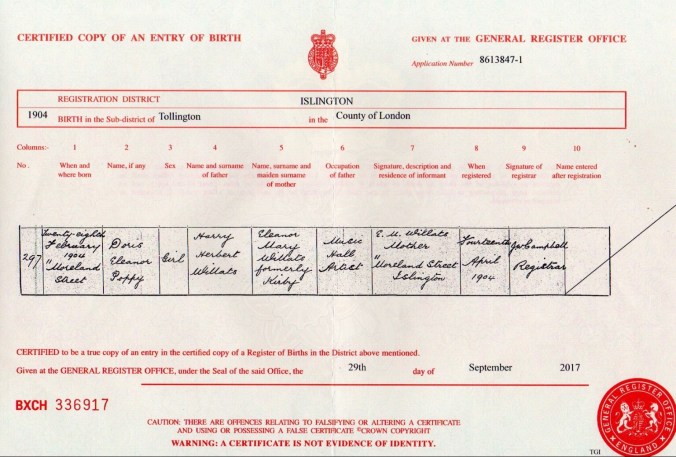 CERTIFIED COPY OF AN ENTRY OF BIRTH
GIVEN AT THE GENERAL REGISTER OFFICE
Application Number 8613847-1
REGISTRATION DISTRICT ISLINGTON
1904 BIRTH in the Sub-district of Tollington in the County of London
Columns:- 1 2 3 4 5 6 7 8 9 10
No. When and where born Name, if any Sex Name and surname of father Name, surname and maiden surname of mother Occupation of father Signature, description and residence of informant When registered Signature of registrar Name entered after registration
297
Twenty-eighth
February
1904
Moreland
Street
Doris
Eleanor
Poppy
Girl
Harry
Herbert
Willats
Eleanor
Mary
Willats
formerly
Kirby
Music
Hall
Artist
E. M. Willats
Mother
Moreland Street
Islington
Fourteenth
April
1904
Campbell
Registrar
CERTIFIED to be a true copy of an entry in the certified copy of a Register of Births in the District above mentioned.
Given at the GENERAL REGISTER OFFICE, under the Seal of the said Office, the 29th day of September 2017
BXCH 336917
CAUTION: THERE ARE OFFENCES RELATING TO FALSIFYING OR ALTERING A CERTIFICATE
AND USING OR POSSESSING A FALSE CERTIFICATE ©CROWN COPYRIGHT
WARNING: A CERTIFICATE IS NOT EVIDENCE OF IDENTITY.
GENERAL REGISTER OFFICE
ENGLAND
TGI